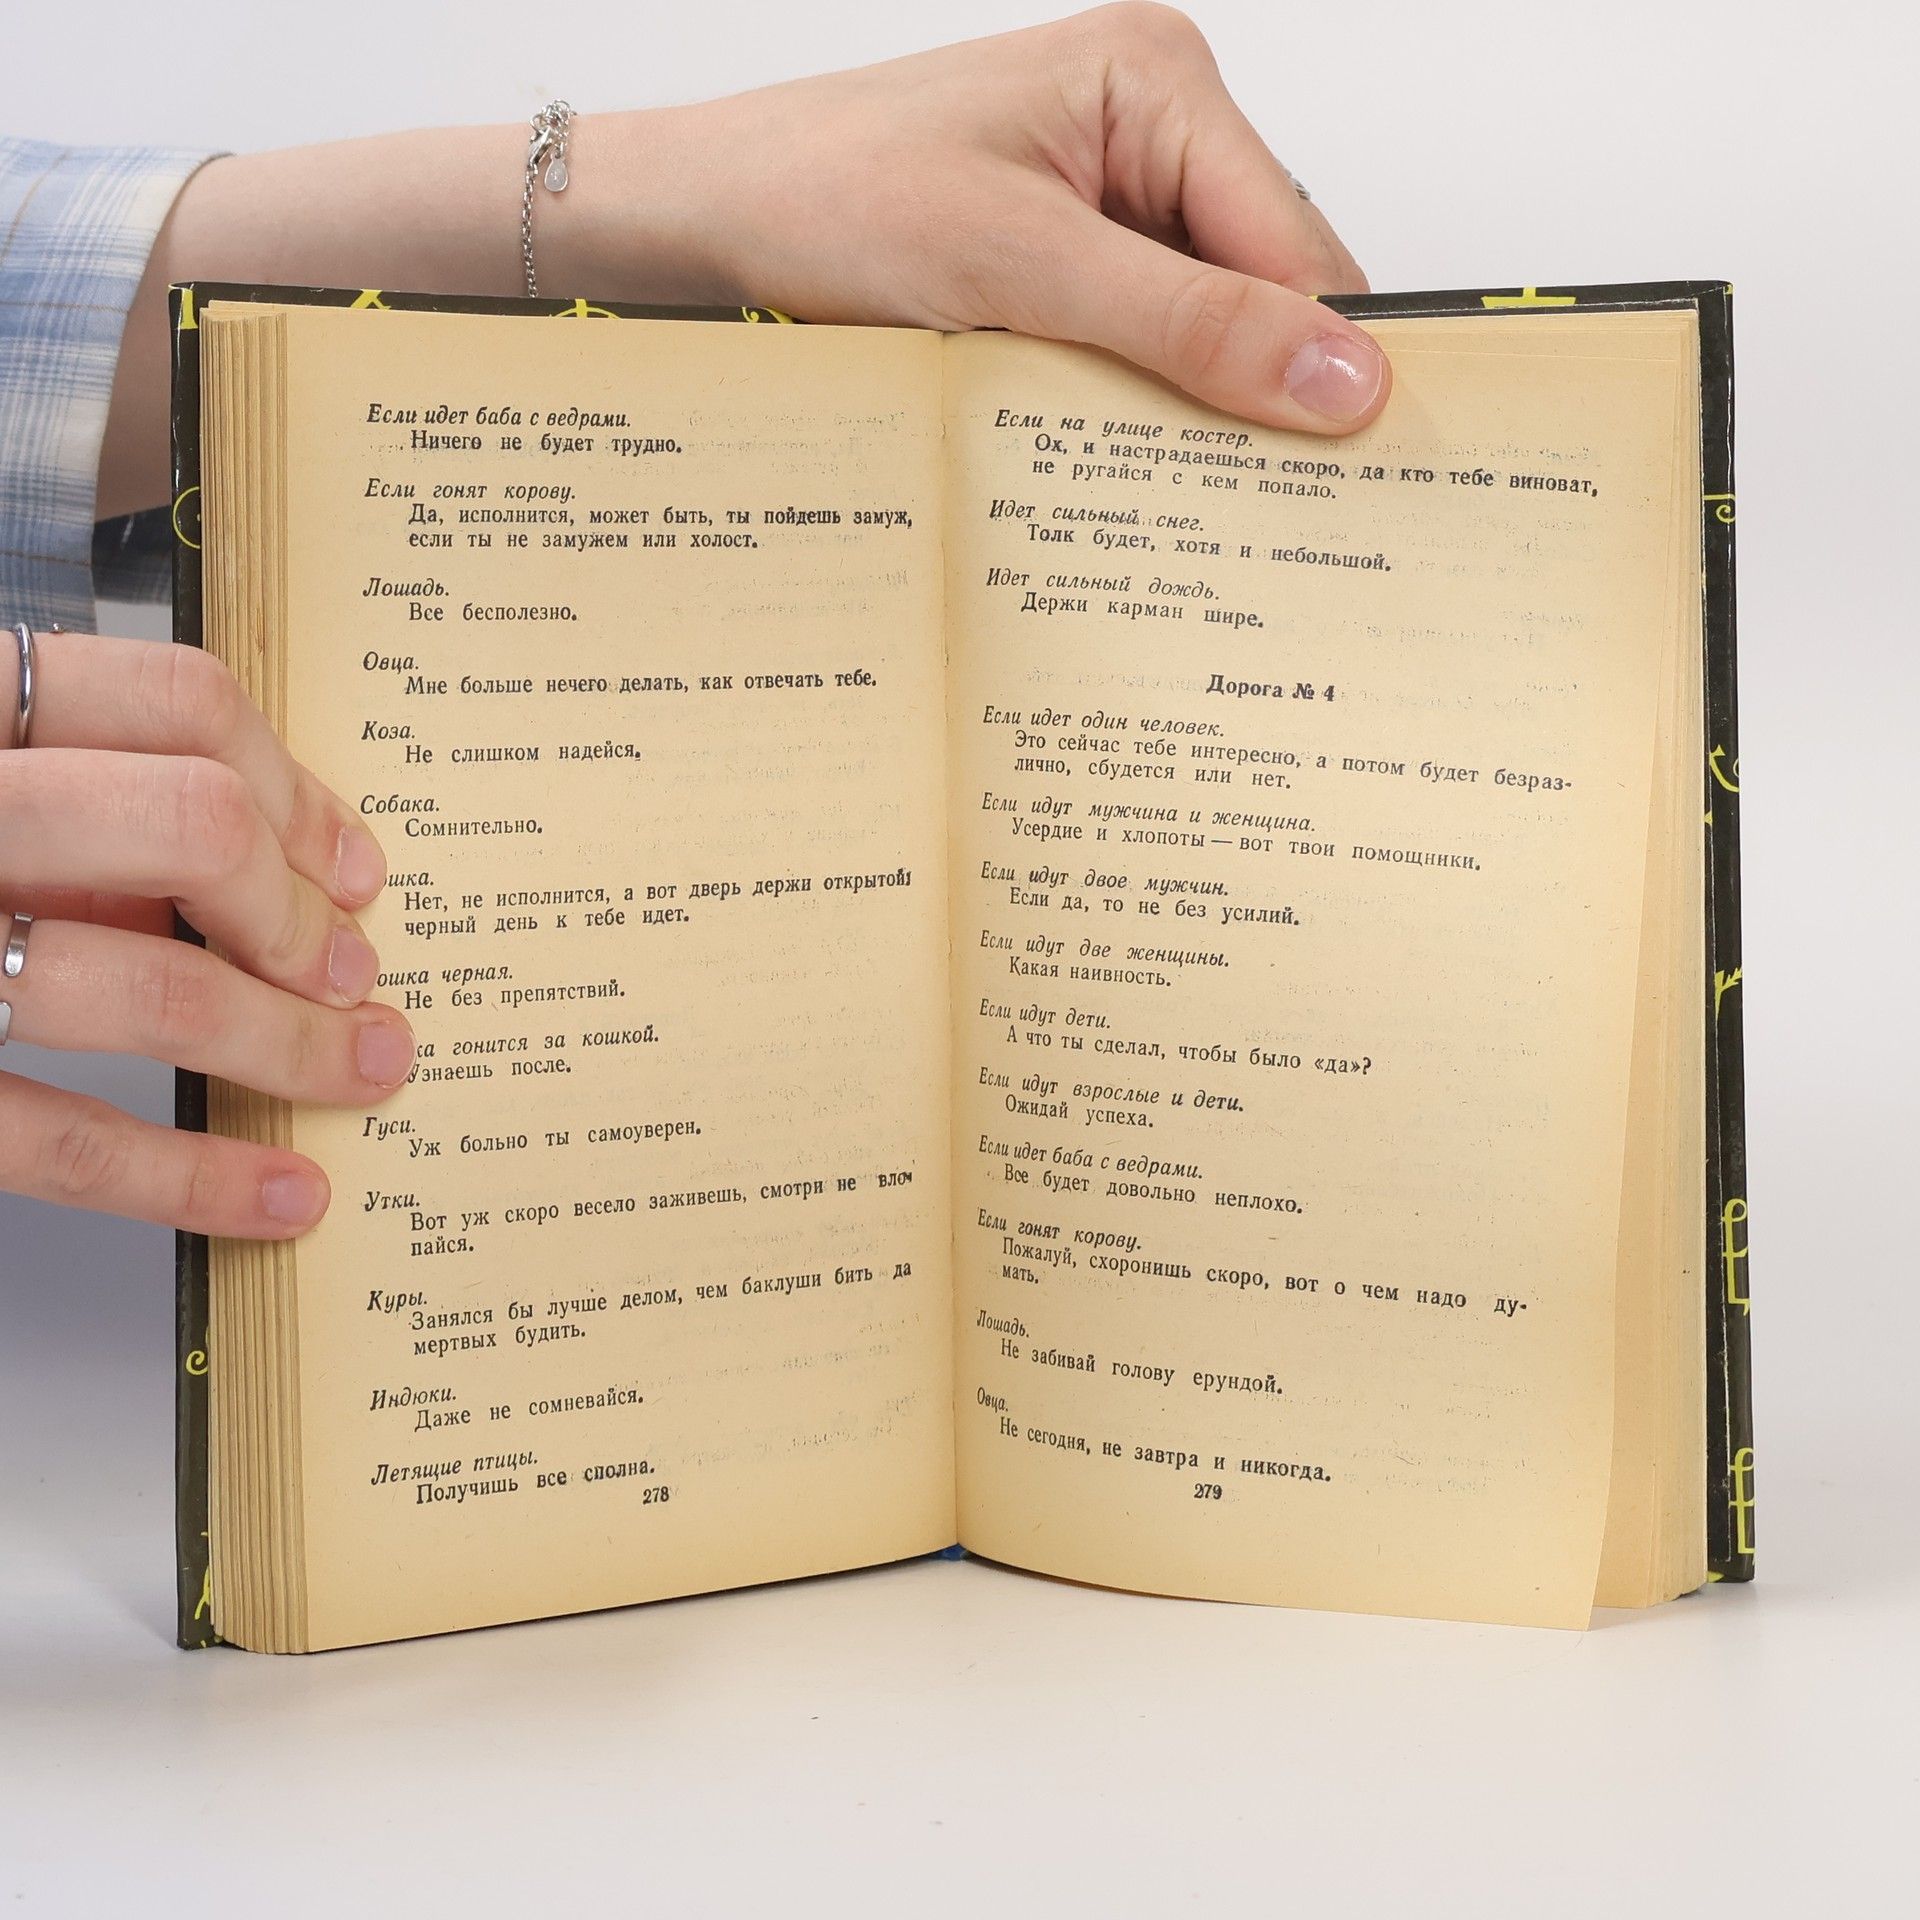 Если идет баба с ведрами.
Ничего не будет трудно.
Если гонят корову.
Да, исполнится, может быть, ты пойдешь замуж,
если ты не замужем или холост.
Лошадь.
Все бесполезно.
Овца.
Мне больше нечего делать, как отвечать тебе.
Коза.
Не слишком надейся.
Собака.
Сомнительно.
Нет, не исполнится, а вот дверь держи открытой:
черный день к тебе идет.
черная.
Не без препятствий.
гонится за кошкой.
Узнаешь после.
Гуси.
Уж больно ты самоуверен.
Утки.
Вот уж скоро весело заживешь, смотри не вло-
пайся.
Куры.
Занялся бы лучше делом, чем баклуши бить да
мертвых будить.
Индюки.
Даже не сомневайся.
Летящие птицы.
Получишь все сполна.
278
Если на улице костер.
Ох, и настрадаешься скоро, да кто тебе виноват,
не ругайся с кем попало.
Идет сильный снег.
Толк будет, хотя и небольшой.
Идет сильный дождь.
Держи карман шире.
Дорога № 4
Если идет один человек.
Это сейчас тебе интересно, а потом будет безраз-
лично, сбудется или нет.
Если идут мужчина и женщина.
Усердие и хлопоты — вот твои помощники.
Если идут двое мужчин.
Если да, то не без усилий.
Если идут две женщины.
Какая наивность.
Если идут дети.
А что ты сделал, чтобы было «да»?
Если идут взрослые и дети.
Ожидай успеха.
Если идет баба с ведрами.
Все будет довольно неплохо.
Если гонят корову.
Пожалуй, схоронишь скоро, вот о чем надо ду-
мать.
Лошадь.
Не забивай голову ерундой.
Овца.
Не сегодня, не завтра и никогда.
279